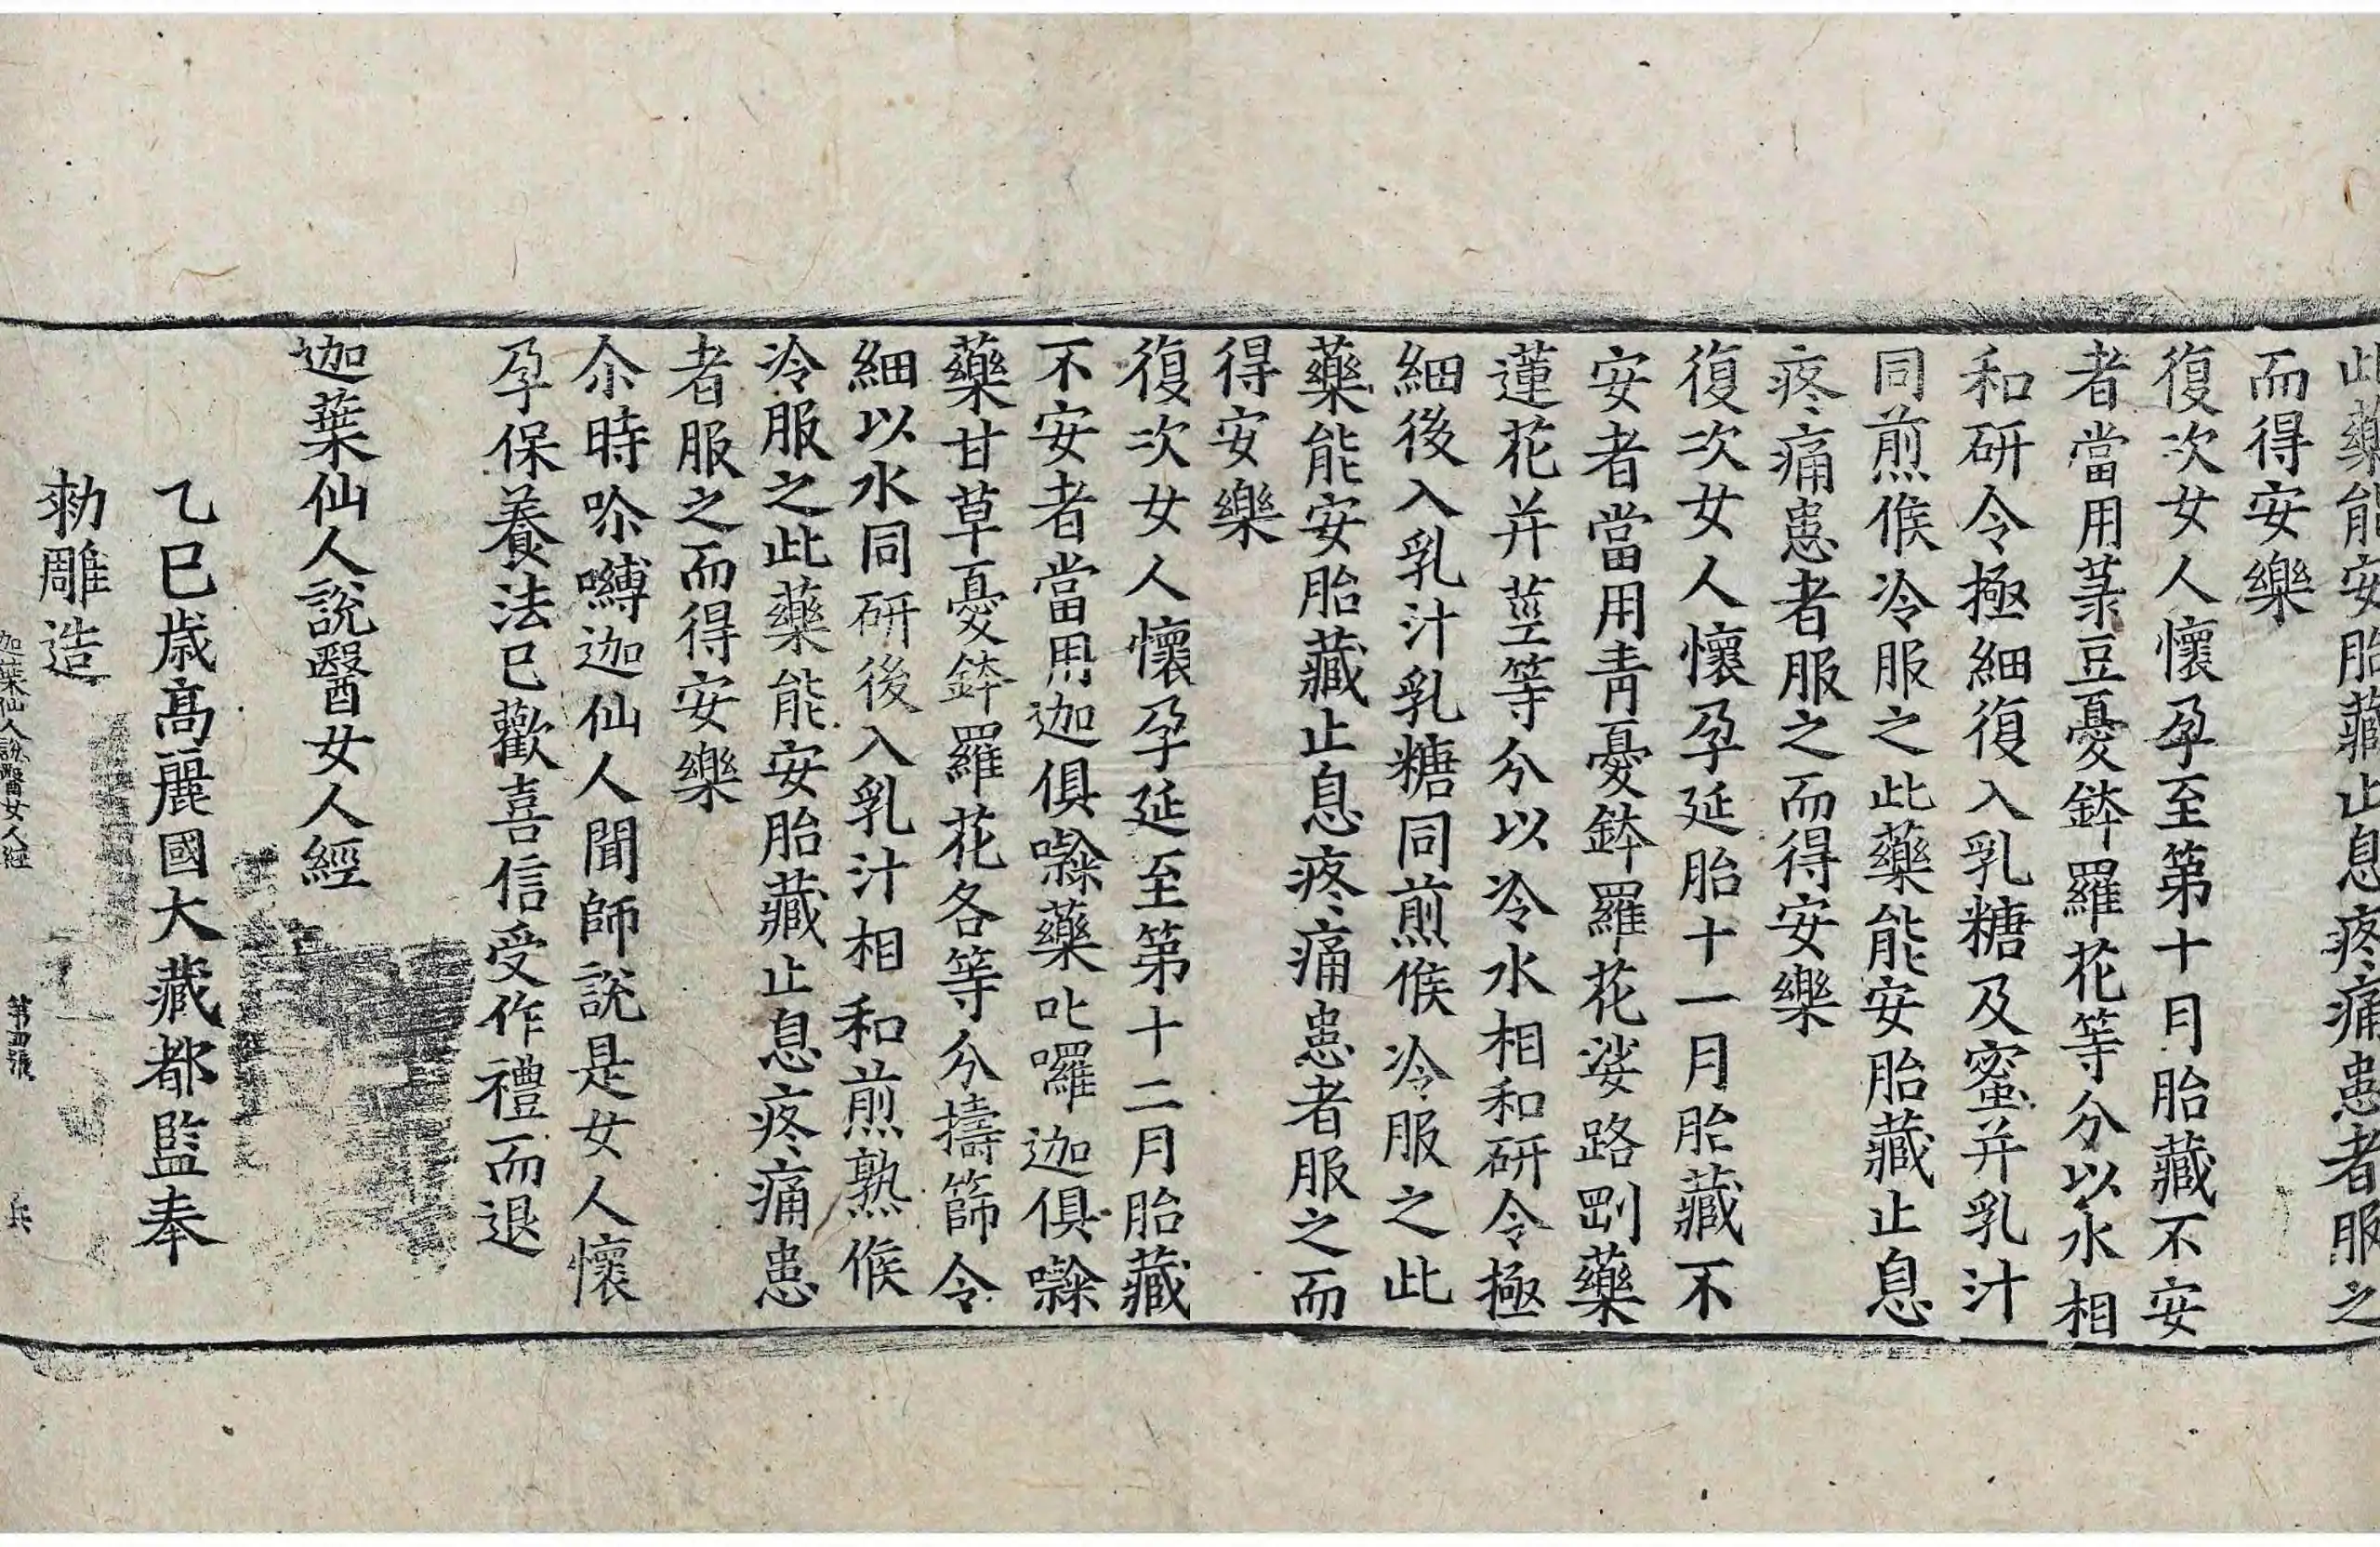 此藥能安胎藏止息疼痛患者服之
而得安樂
復次女人懷孕至第十月胎藏不安
者當用菉豆憂鉢羅花等分以水相
和研令極細復入乳糖及蜜并乳汁
同煎候冷服之此藥能安胎藏止息
疼痛患者服之而得安樂
復次女人懷孕延胎十一月胎藏不
安者當用青憂鉢羅花娑路㓻藥
蓮花并莖等分以冷水相和研令極
細後入乳汁乳糖同煎候冷服之此
藥能安胎藏止息疼痛患者服之而
得安樂
復次女人懷孕延至第十二月胎藏
不安者當用迦俱囕藥叱囉迦俱囕
藥甘草憂鉢羅花各等分擣篩令
細以水同研後入乳汁相和煎熟候
冷服之此藥能安胎藏止息疼痛患
者服之而得安樂
尒時嚩迦仙人聞師說是女人懷
孕保養法已歡喜信受作禮而退
迦葉仙人說醫女人經
乙巳歲高麗國大藏都監奉
勑雕造
迦葉仙人說醫女人經 第四張 兵